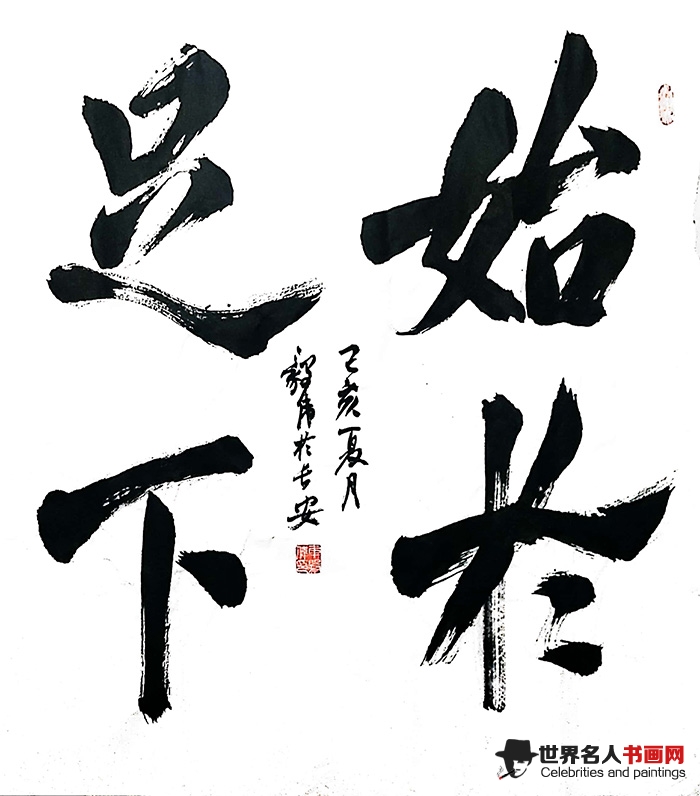 始於
足下
己亥夏月
毅伟於长安
世界名人书画网
Celebrities and paintings